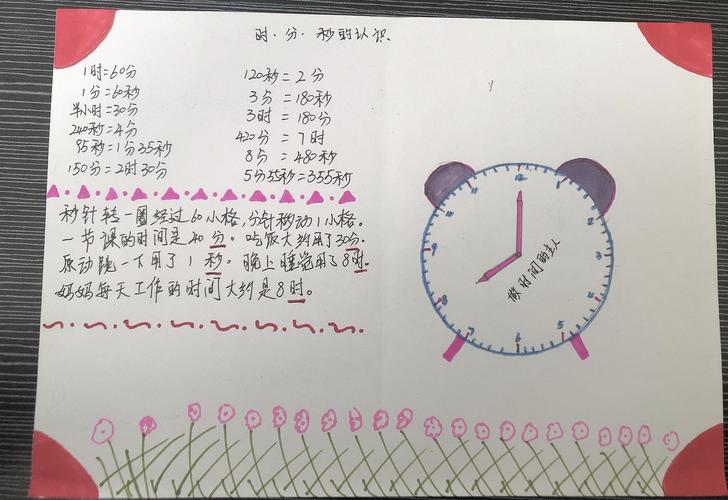 时·分·秒的认识
1时=60分
1分=60秒
半小时=30分
240秒=4分
95秒=1分35秒
150分=2时30分
120秒=2分
3分=180秒
3时=180分
420分=7时
8分=480秒
5分55秒=355秒
秒针转一圈经过60小格,分针移动1小格。
一节课的时间是40分。吃饭大约用了30分。
原动跳一下用了1秒。晚上睡觉用了8时。
妈妈每天工作的时间大约是8时。
12
11
1
10
2
9
3
8
4
7
6
5
做时间的主人